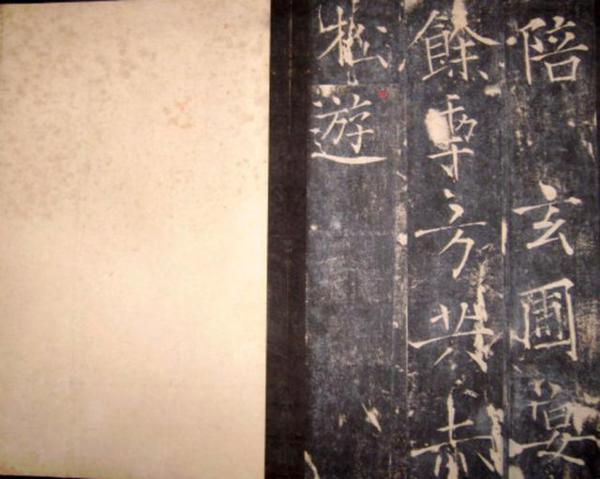 陪玄圃宴
餘方共赤
松遊